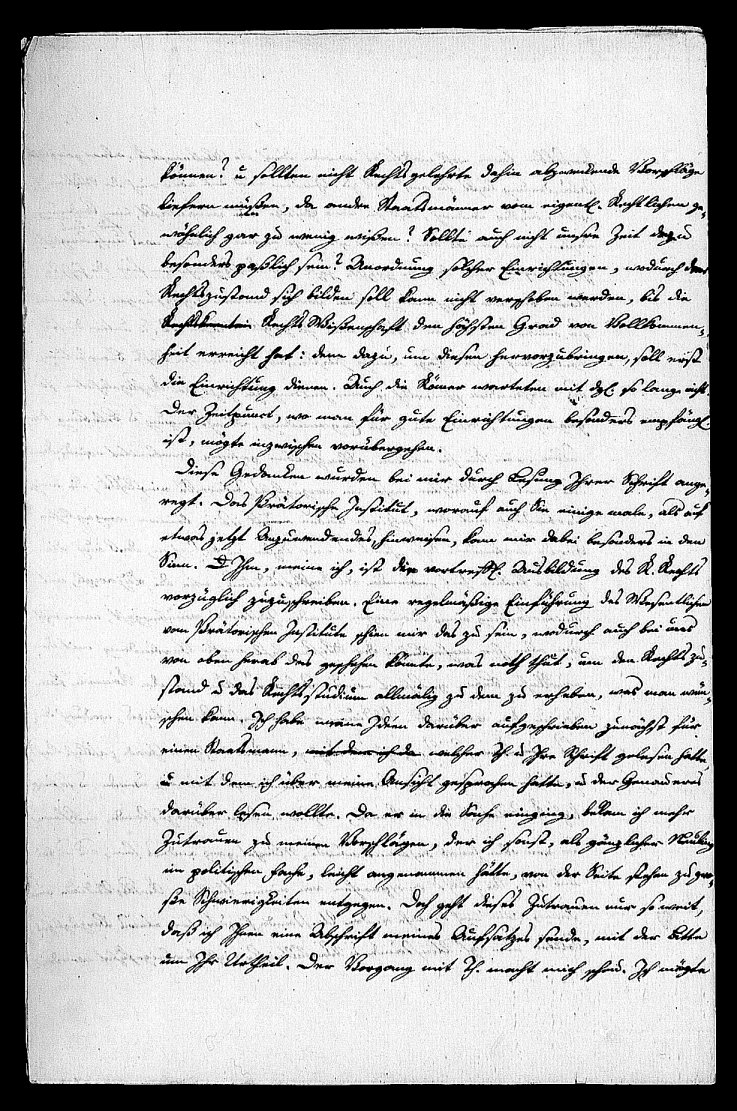 können? u sollten nicht Rechtsgelehrte dahin abzweckende Vorschläge
liefern müßen, da andre Staatsmänner vom eigentl. Rechtlichen ge-
wöhnlich gar zu wenig wißen? Sollte auch nicht unsre Zeit dazu
besonders paßlich sein? Anordnung solcher Einrichtungen, wodurch der
Rechtszustand sich bilden soll kann nicht verschoben werden, bis die
Rechts Wißenschaft den höchsten Grad von Vollkommen-
heit erreicht hat: denn dazu, um diesen hervorzubringen, soll erst
die Einrichtung dienen. Auch die Römer warteten mit dgl. so lange nicht.
Der Zeitpunct, wo man für gute Einrichtungen besonders empfängl.
ist, mögte inzwischen vorübergehen.
Diese Gedanken wurden bei mir durch Lesung Ihrer Schrift ange-
regt. Das Prätorische Institut, worauf auch Sie einige male, als auf
etwas jetzt Anzuwendendes, hinweisen, kam mir dabei besonders in den
Sinn. Ihm, meine ich, ist die vortreffl. Ausbildung des R. Rechts
vorzüglich zuzuschreiben. Eine regelmäßige Einführung des Wesentlichen
vom Prätorischen Institute schien mir das zu sein, wodurch auch bei uns
von oben herab das geschehen könnte, was noth thut, um den Rechtszu-
stand u das Rechtsstudium allmälig zu dem zu erheben, was man wün-
schen kann. Ich habe meine Ideen darüber aufgeschrieben zunächst für
einen Staatsmann, mit dem ich da welcher Th. u Ihre Schrift gelesen hatte,
u mit dem ich über meine Ansicht gesprochen hatte, u der Genaueres
darüber lesen wollte. Da er in die Sache einging, bekam ich mehr
Zutrauen zu meinen Vorschlägen, der ich sonst, als gänzlicher Neuling
im politischen Fache, leicht angenommen hätte, von der Seite stehen zu gro-
ße Schwierigkeiten entgegen. Doch geht dieses Zutrauen nur so weit,
daß ich Ihnen eine Abschrift meines Aufsatzes sende, mit der Bitte
um Ihr Urtheil. Der Vorgang mit Th. macht mich scheu. Ich mögte